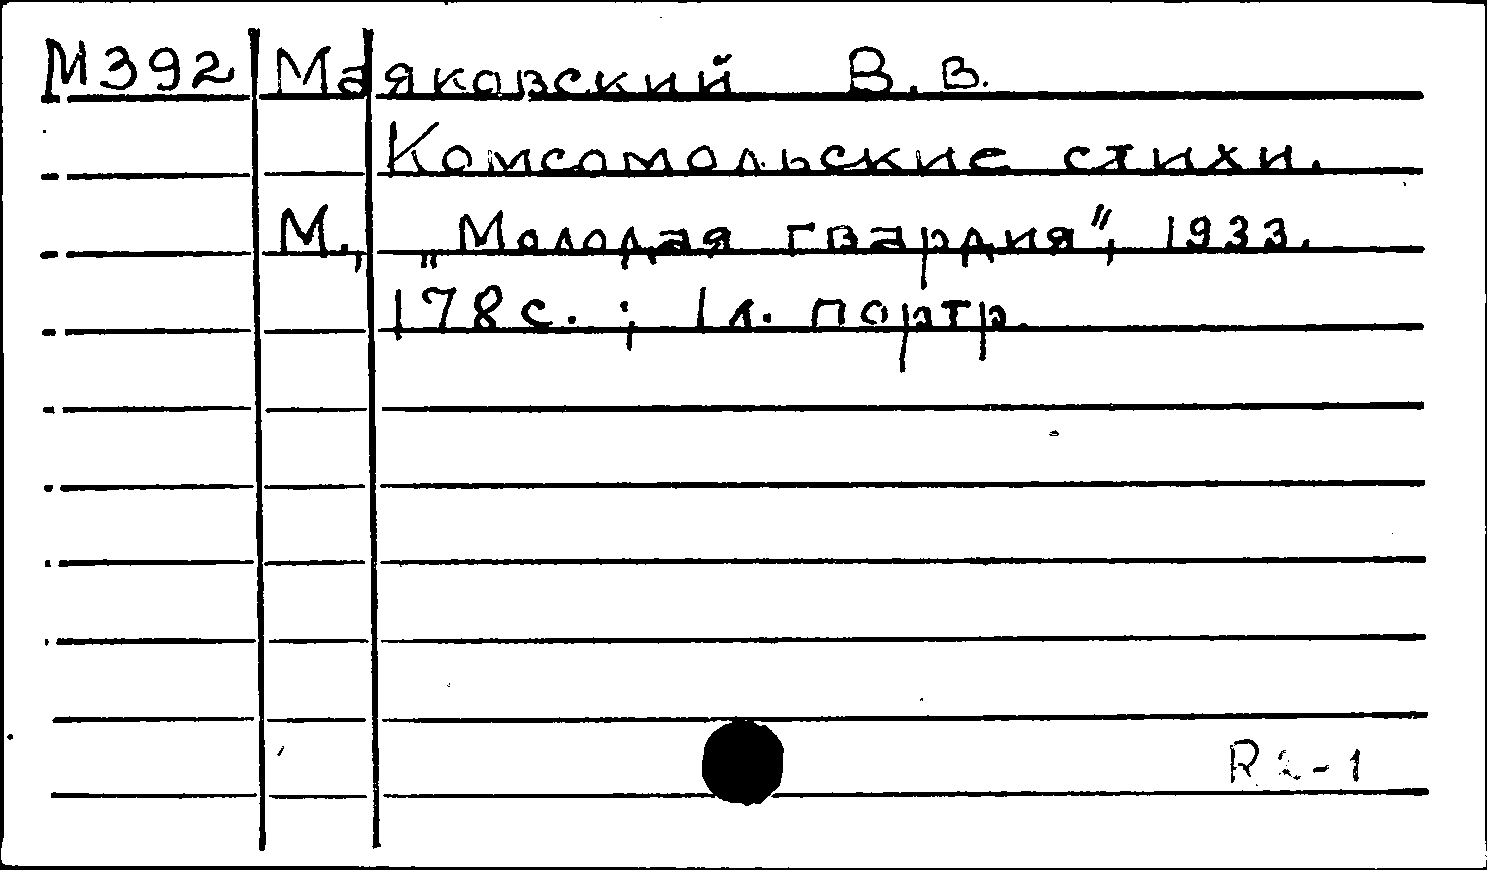 М392 Маяковский В.В.
Комсомольские стихи.
М., „Молодая гвардия“, 1933.
178с.; 1л. портр.
R2-1